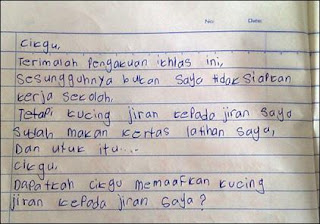 No:      Date:
Cikgu,
Terimalah Pengakuan ikhlas ini,
Sesungguhnya bukan saya tidak siapkan
kerja sekolah,
Tetapi kucing jiran kepada jiran saya
Sudah makan kertas latihan saya,
Dan utuk itu....
Cikgu,
Dapatkah cikgu memaafkan kucing
jiran kepada jiran saya?